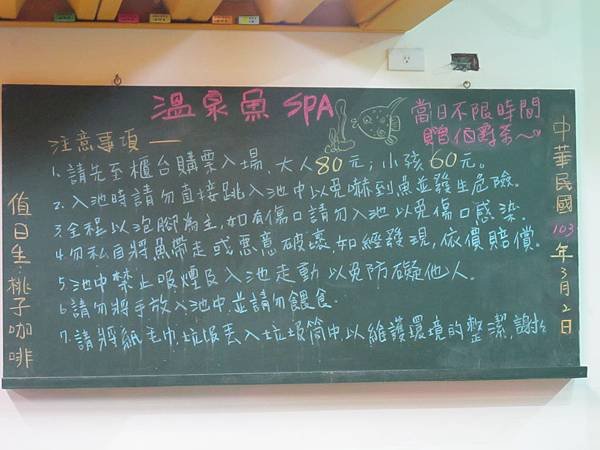 溫泉魚 SPA
當日不限時間
贈伯爵茶～
注意事項——
1. 請先至櫃台購票入場、大人80元；小孩60元。
2. 入池時請勿直接跳入池中以免嚇到魚並發生危險。
3. 全程以泡腳為主，如有傷口請勿入池以免傷口感染。
4. 勿私自將魚帶走或惡意破壞，如經發現，依價賠償。
5. 池中禁止吸煙及入池走動以免防礙他人。
6. 請勿將手放入池中，並請勿餵食.
7. 請將紙毛巾，垃圾丟入垃圾筒中，以維護環境的整潔，謝謝
值日生：桃子咖啡
中華民國103年3月2日